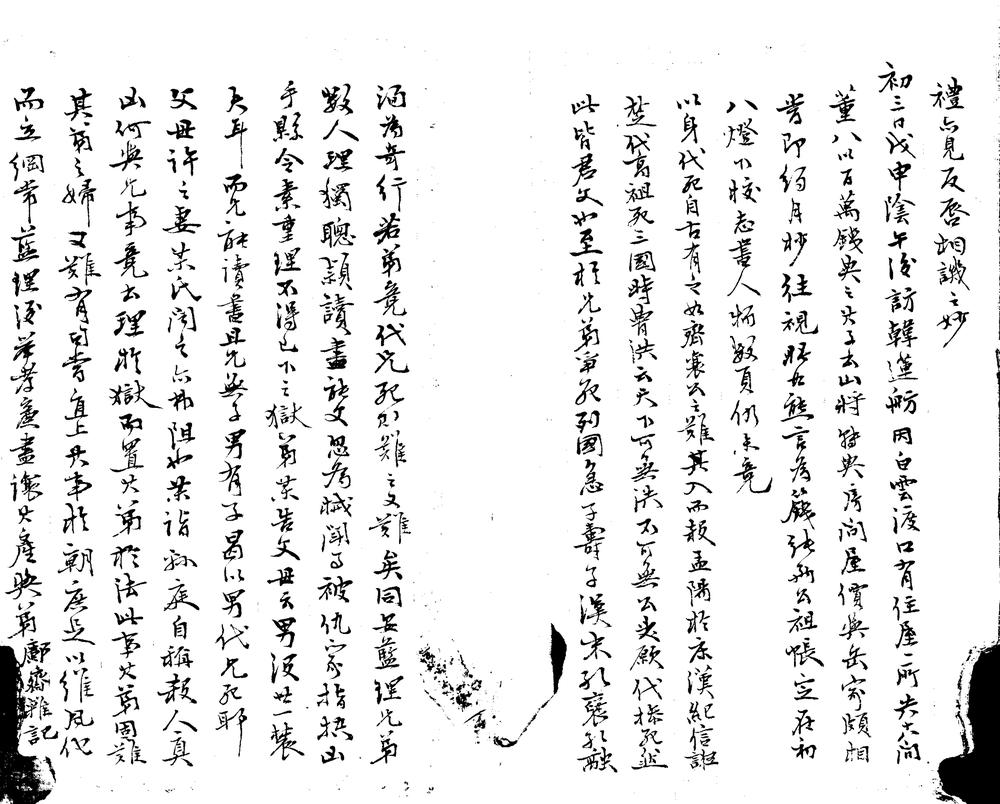 禮亦見反唇相譏之妙
初三日戊申陰午後訪韓蓮舫因白雲渡口有住屋一所共六間
董八以百萬錢典之其子去山將轉典房間屋價與岳家頗相
當即約月杪往視晤古熊言為籛張姍公祖帳定在初
八燈下校志書人物數頁仍未竟
以身代死自古有之如齊襄公之難其入而殺孟陽於床漢紀信誑
楚代高祖死三國時曹洪云天下可無洪不可無公夫願代操死然
此皆君父也至於兄弟爭死列國急子壽子漢末孔襃孔融
洵為奇行若弟竟代兄死尒難之又難矣同安藍理兄弟
數人理獨聰穎讀書能文忽為械鬥事被仇家指控山
手縣令素重理不得已下之獄弟某告父母云男沒世一裝
夫耳而兄能讀書且兄無子男有子曷以男代兄死耶
父母許之妻某氏聞之亦弗阻也某詣縣庭自稱殺人真
凶何與兄事竟出理於獄而置其弟於法此事其弟固難
其弟之婦又難有司當直上其事於朝庶足以維風化
而立綱常藍理後舉孝廉盡讓其產與弟鄺齋雜記